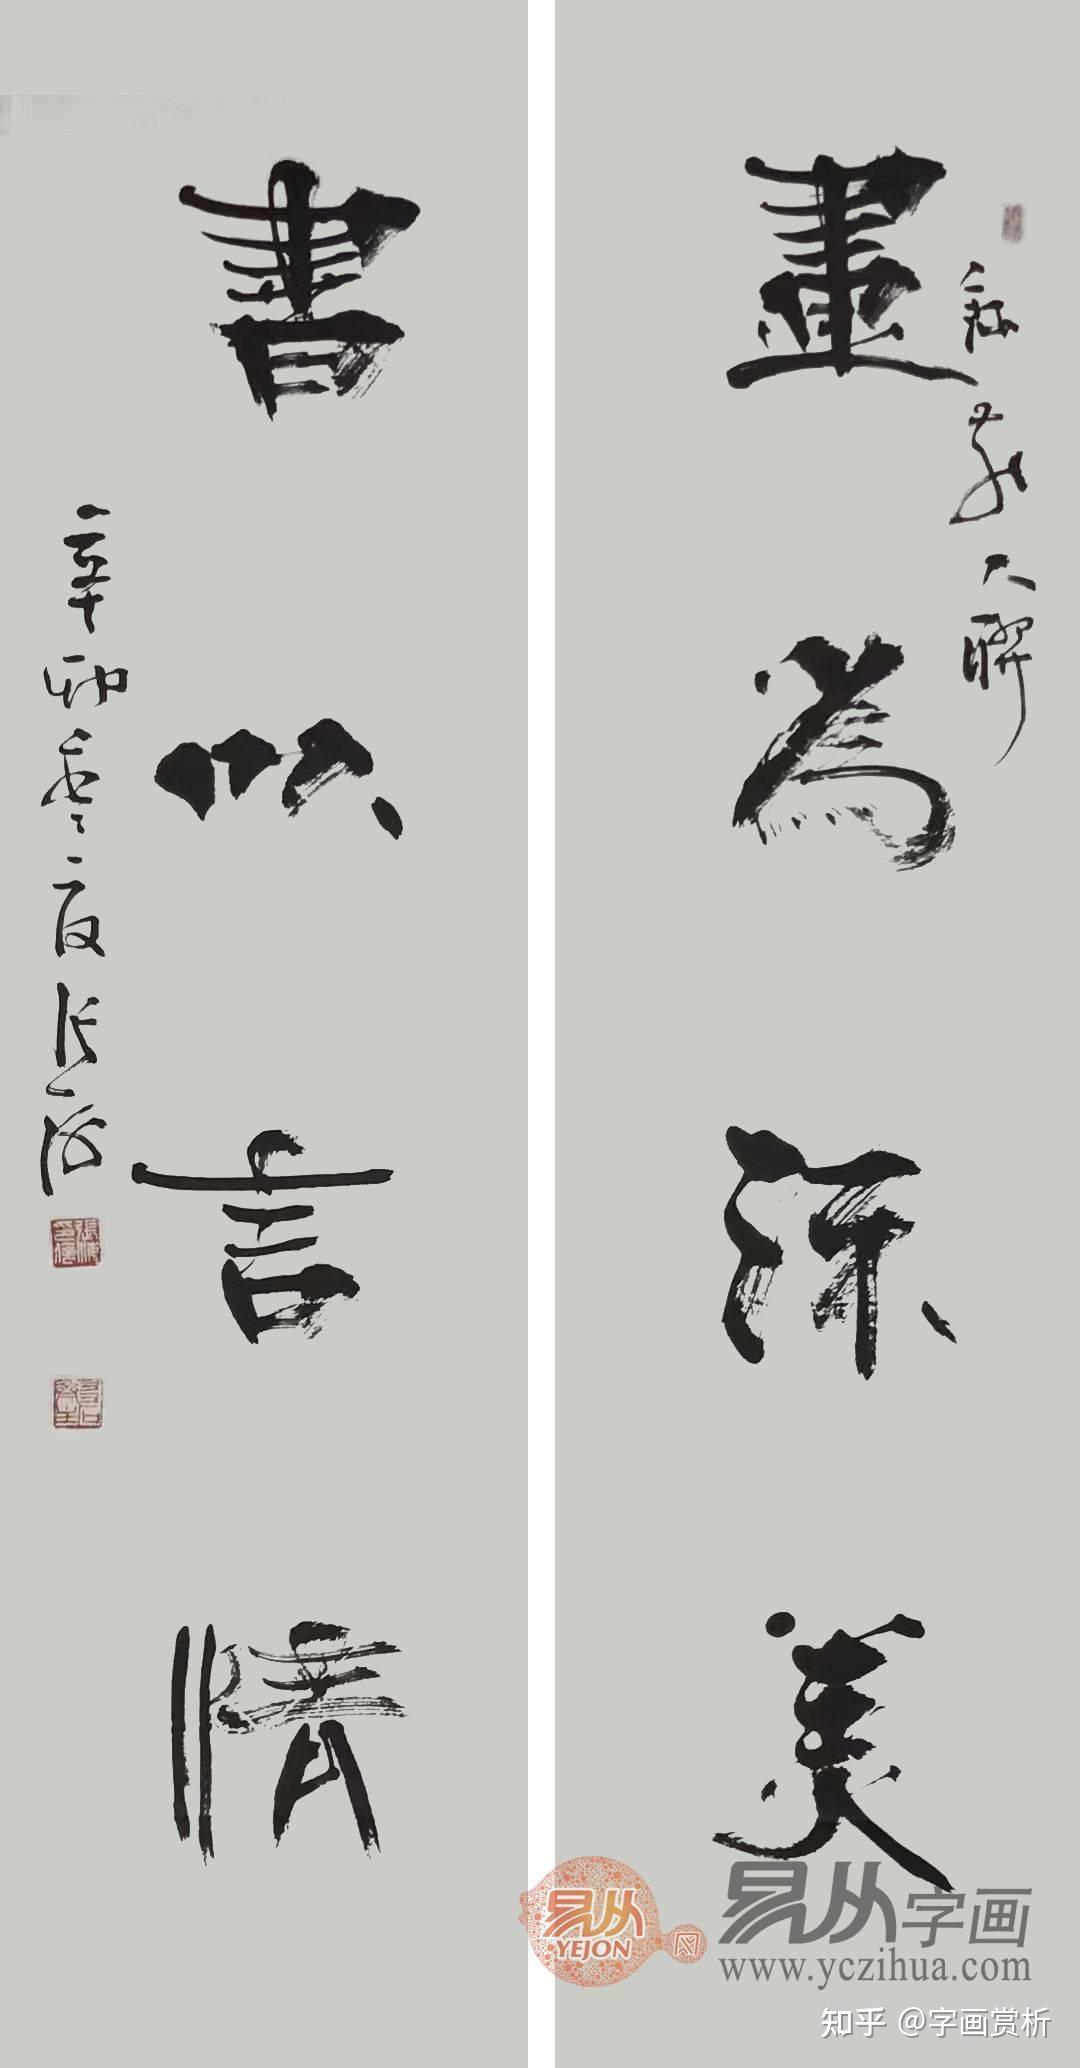 畫為流美
大聯
書以言情
辛卯
張海
易从
YEJON
易从字画
www.yczihua.com
知乎 @字画赏析